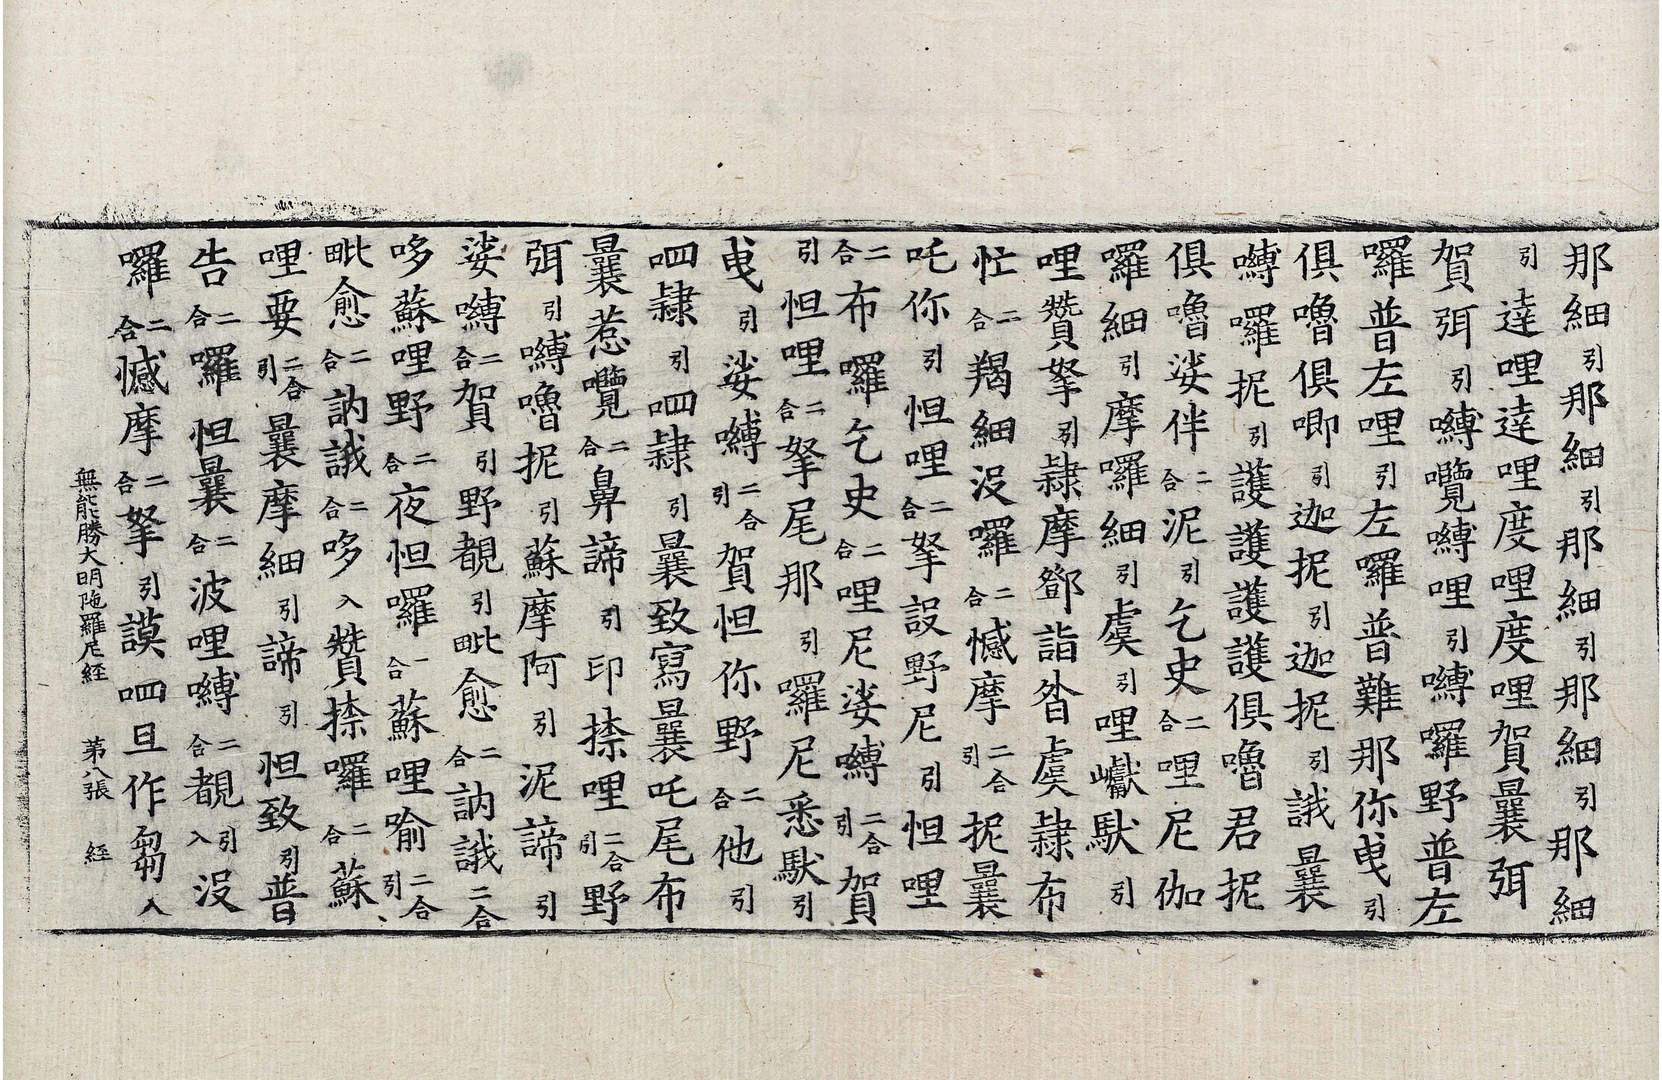 那細引那細引那細引那細引那細
引達哩達哩度哩度哩賀曩弭
賀弭引嚩囕嚩哩引嚩囉野普左
囉普左哩引左囉普難那你曳引
俱嚕俱唧引迦抳引迦抳引誐曩
嚩囉抳引護護護護俱嚕君抳
俱嚕娑伴二合泥引乞史二合哩尼伽
囉細引摩囉細引虞引哩巘馱引
哩贊拏引隸摩鄧詣昝虞隸布
忙二合羯細沒囉二合憾摩二合引抳曩
吒你引怛哩二合拏設野尼引怛哩
二合布囉乞史二合哩尼娑嚩二合引賀
引怛哩二合拏尾那引囉尼悉馱引
曳引娑嚩二合引賀怛你野二合他引
呬隸引呬隸引曩致寫曩吒尾布
曩惹囕二合鼻諦引印捺哩二合引野
弭引嚩嚕抳引蘇摩阿引泥諦引
娑嚩二合賀引野覩引毗愈二合訥誐二合
哆蘇哩野二合夜怛囉一合蘇哩喻二合引
毗愈二合訥誐二合哆入贊捺囉二合蘇
哩要二合引曩摩細引諦引怛致引普
告二合囉怛曩二合波哩嚩二合覩引入沒
囉二合憾摩二合拏引謨呬旦作芻入
無能勝大明陁羅尼經 第八張 經